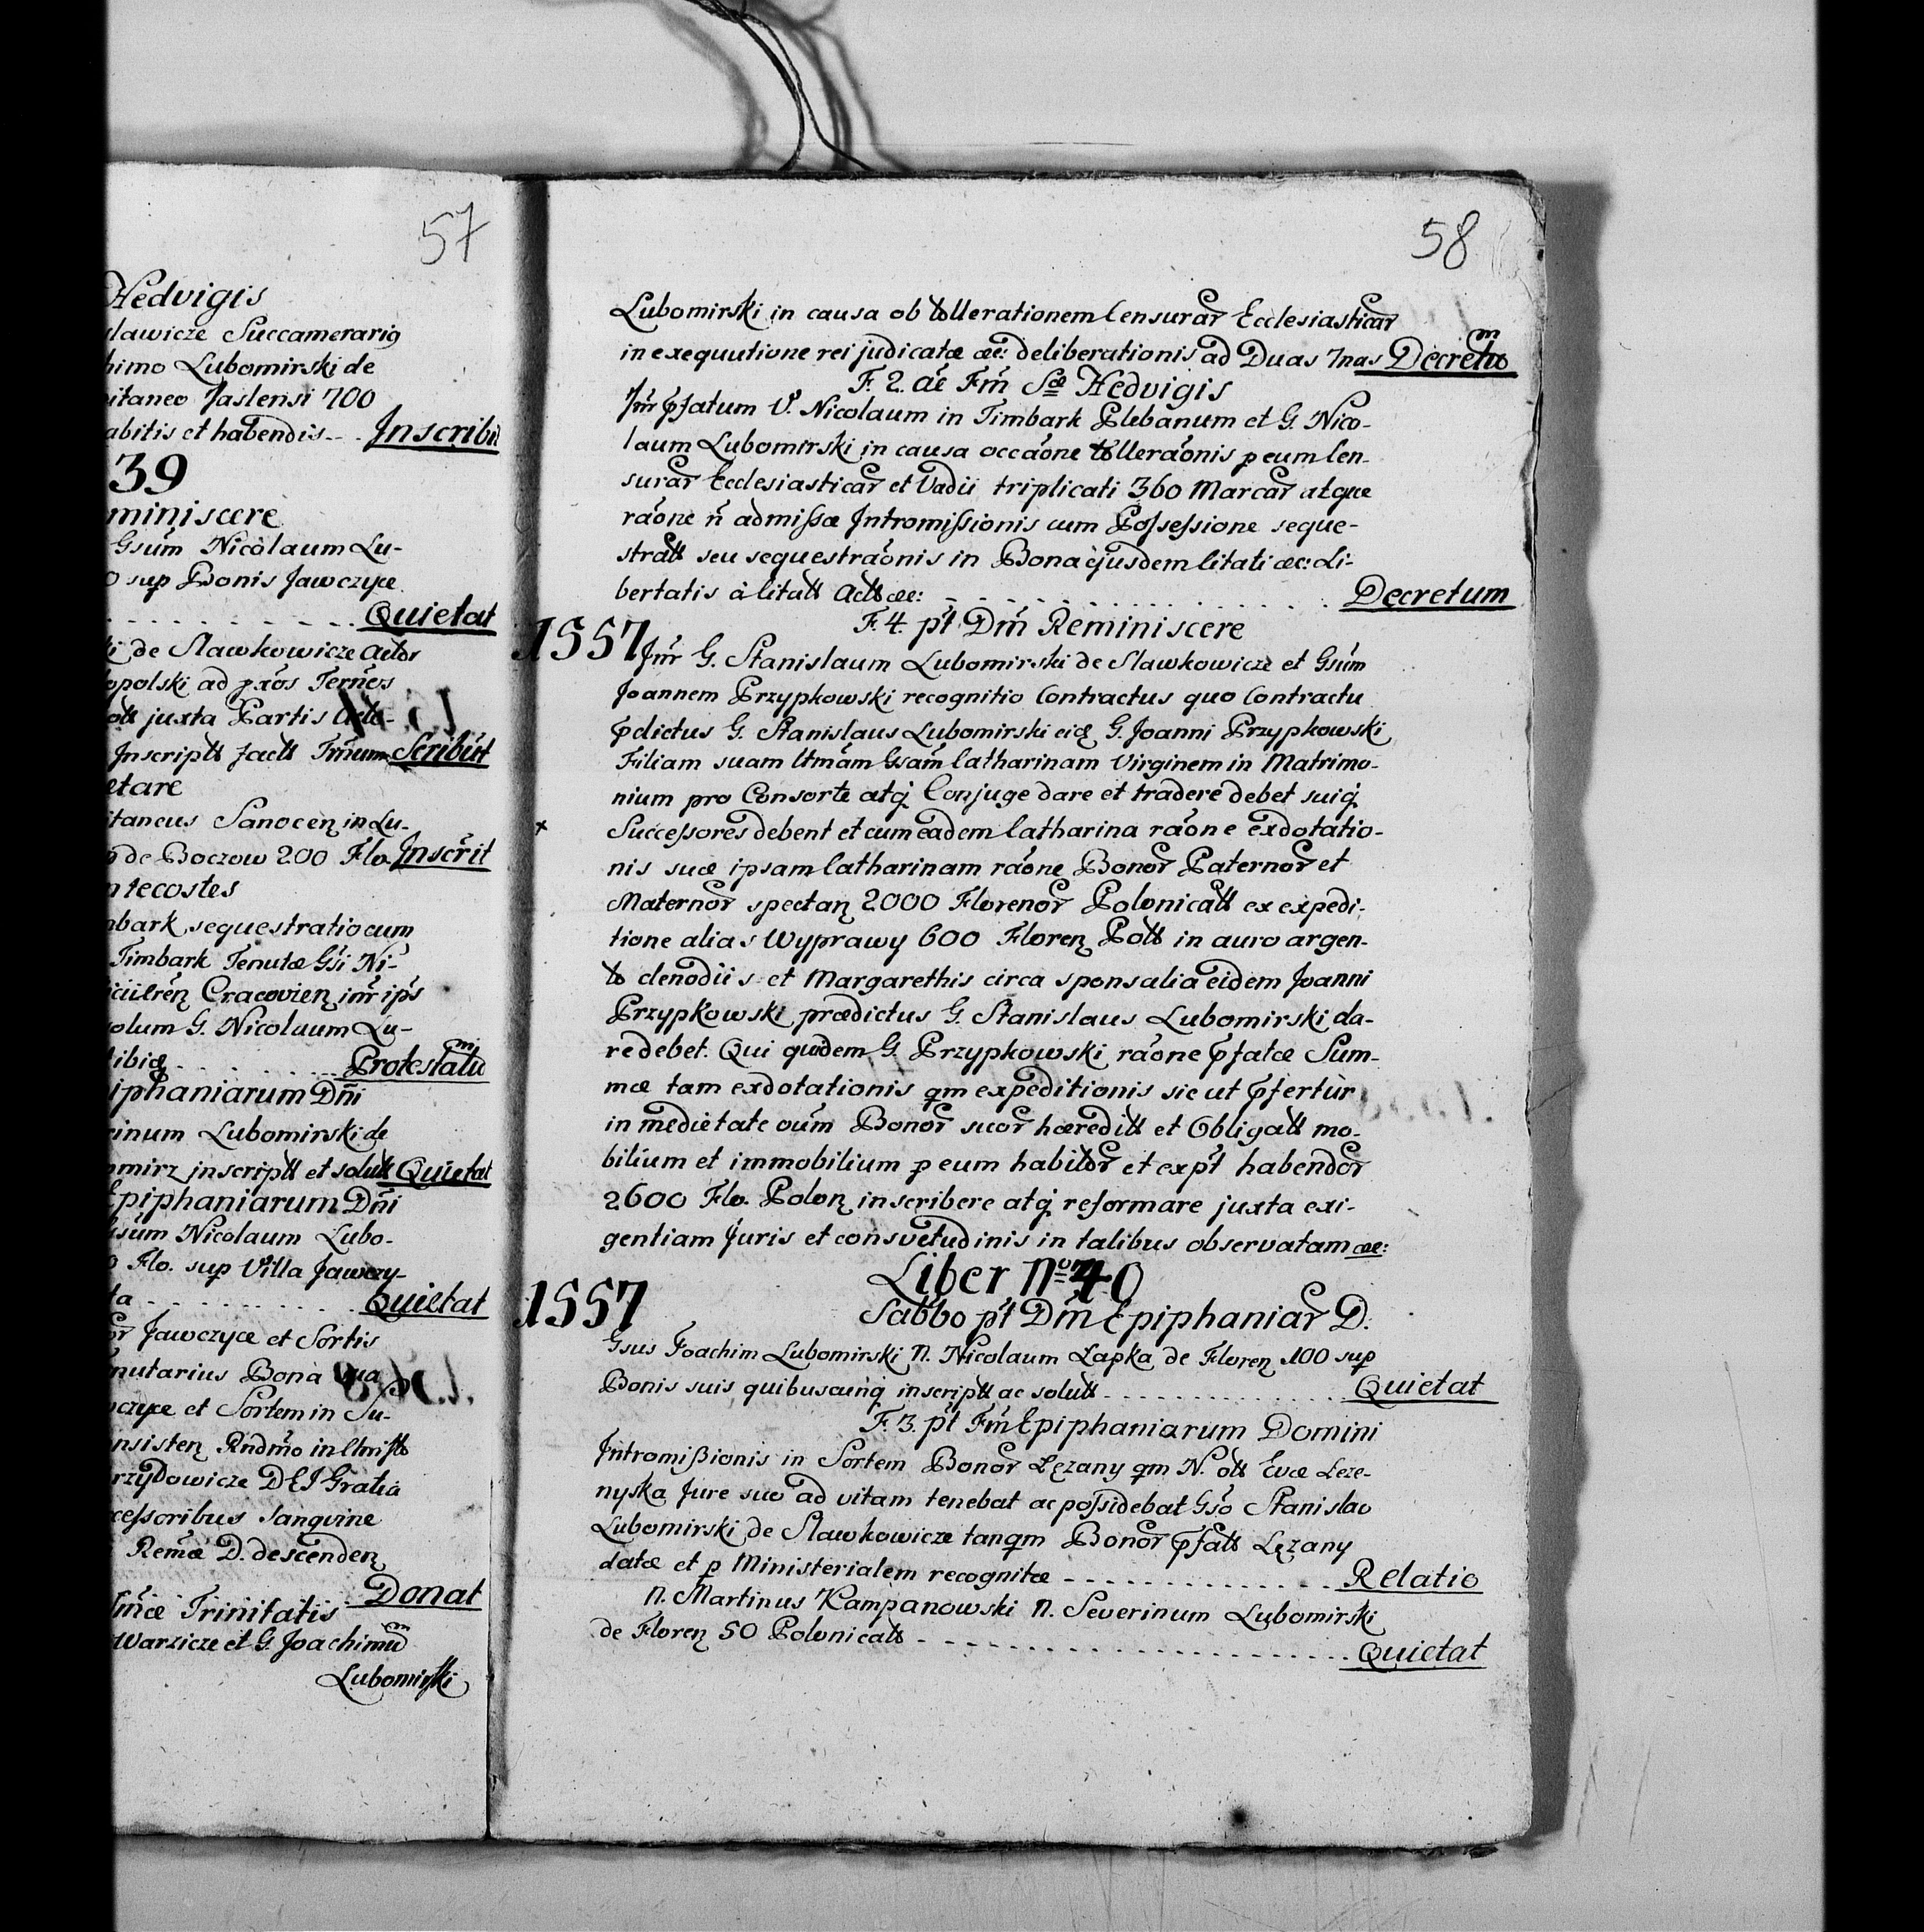 57
Hedvigis
slawicze Succamerariꝯ
himo Lubomirski de
pitaneo Jaslensi 700
abitis et habendis - - . Inscribit
39
miniscere
Gsum̃ Nicolaum Lu-
0 sup Bonis Jawczyce
Quietat
ki de Slawkowicze Actor
opolski ad pxos Term̃os
juxta Partis Acto-
Inscriptt factt Trm̃um Scribũt
etare
itaneus Sanoceñ in Lu-
de Boczow 200 Flo. Inscrit
ntecostes
mbark sequestratio cum
Timbark Tenutæ Gsi Ni-
Cracovieñ inr̃ ips
olum G. Nicolaum Lu-
ibidẽ Protestatum
iphaniarum Dñi
rinum Lubomirski de
mirz inscriptt et solutt Quietat
Epiphaniarum Dñi
Gsum̃ Nicolaum Lubo-
0 Flo. sup Villa Jawczy-
ta Quietat
or̃ Jawczyce et Sortis
nutarius Bona sua
wczyce et Sortem in Su-
nsisteñ Rndm̃o in Christo
rzydowicze DEI Gratia
ccessoribus Sangvine
Remæ D. descendeñ
Donat
Trinitatis
Warzicze et G. Joachimum
Lubomirski
58
Lubomirski in causa ob tollerationem Censurar̃ Ecclesiasticar̃
in exequutione rei judicatæ æc: deliberationis ad Duas 7nas Decretum
F. 2. ae Fm̃ Scæ Hedvigis
Inr̃ pfatum V. Nicolaum in Timbark Plebanum et G. Nico-
laum Lubomirski in causa occaõne tolleraõnis p eum Cen-
surar̃ Ecclesiasticar̃ et Vadii triplicati 360 Marcar̃ atque
raõne ñ admissæ Intromissionis cum Possessione seque-
stratt seu sequestraõnis in Bona ejusdem litati æc: Li-
bertatis à litatt Actt æc: Decretum
F. 4. pt̃ Dm̃ Reminiscere
1557 Inr̃ G. Stanislaum Lubomirski de Slawkowicze et Gsum̃
Joannem Przypkowski recognitio Contractus quo Contractu
pdictus G. Stanislaus Lubomirski eid G. Joanni Przypkowski
Filiam suam Ltmãm Gsam̃ Catharinam Virginem in Matrimo-
nium pro Consorte atq Conjuge dare et tradere debet suiq
x Successores debent et cum eadem Catharina raõne exdotatio-
nis suæ ipsam Catharinam raõne Bonor̃ Paternor̃ et
Maternor̃ spectañ 2000 Florenor̃ Polonicatt ex expedi-
tione alias Wyprawy 600 Floreñ Pott in auro argen-
to clenodiis et Margarethis circa sponsalia eidem Joanni
Przypkowski prædictus G. Stanislaus Lubomirski da-
re debet. Qui quidem G. Przypkowski raõne pfatæ Sum-
mæ tam exdotationis qm expeditionis sic ut pfertur
in medietate oum̃ Bonor̃ suor̃ hæreditt et Obligatt mo-
bilium et immobilium p eum habitor̃ et ex pt̃ habendor̃
2600 Flo. Poloñ inscribere atq reformare juxta exi-
gentiam Juris et consvetudinis in talibus observatam æc:
Liber No 40
1557 Sabbo pt̃ Dm̃ Epiphaniar̃ D.
Gsus Joachim Lubomirski N. Nicolaum Lapka de Floreñ 100 sup
Bonis suis quibuscunq inscriptt ac solutt Quietat
F. 3. pt̃ Fm̃ Epiphaniarum Domini
Intromissionis in Sortem Bonor̃ Lęzany qm N. ott Evæ Leze-
nyska Jure suo ad vitam tenebat ac possidebat Gso Stanislao
Lubomirski de Slawkowicze tanqm Bonor̃ pfatt Lęzany
datæ et p Ministerialem recognitæ Relatio
N. Martinus Kampanowski N. Severinum Lubomirski
de Floreñ 50 Polonicatt Quietat